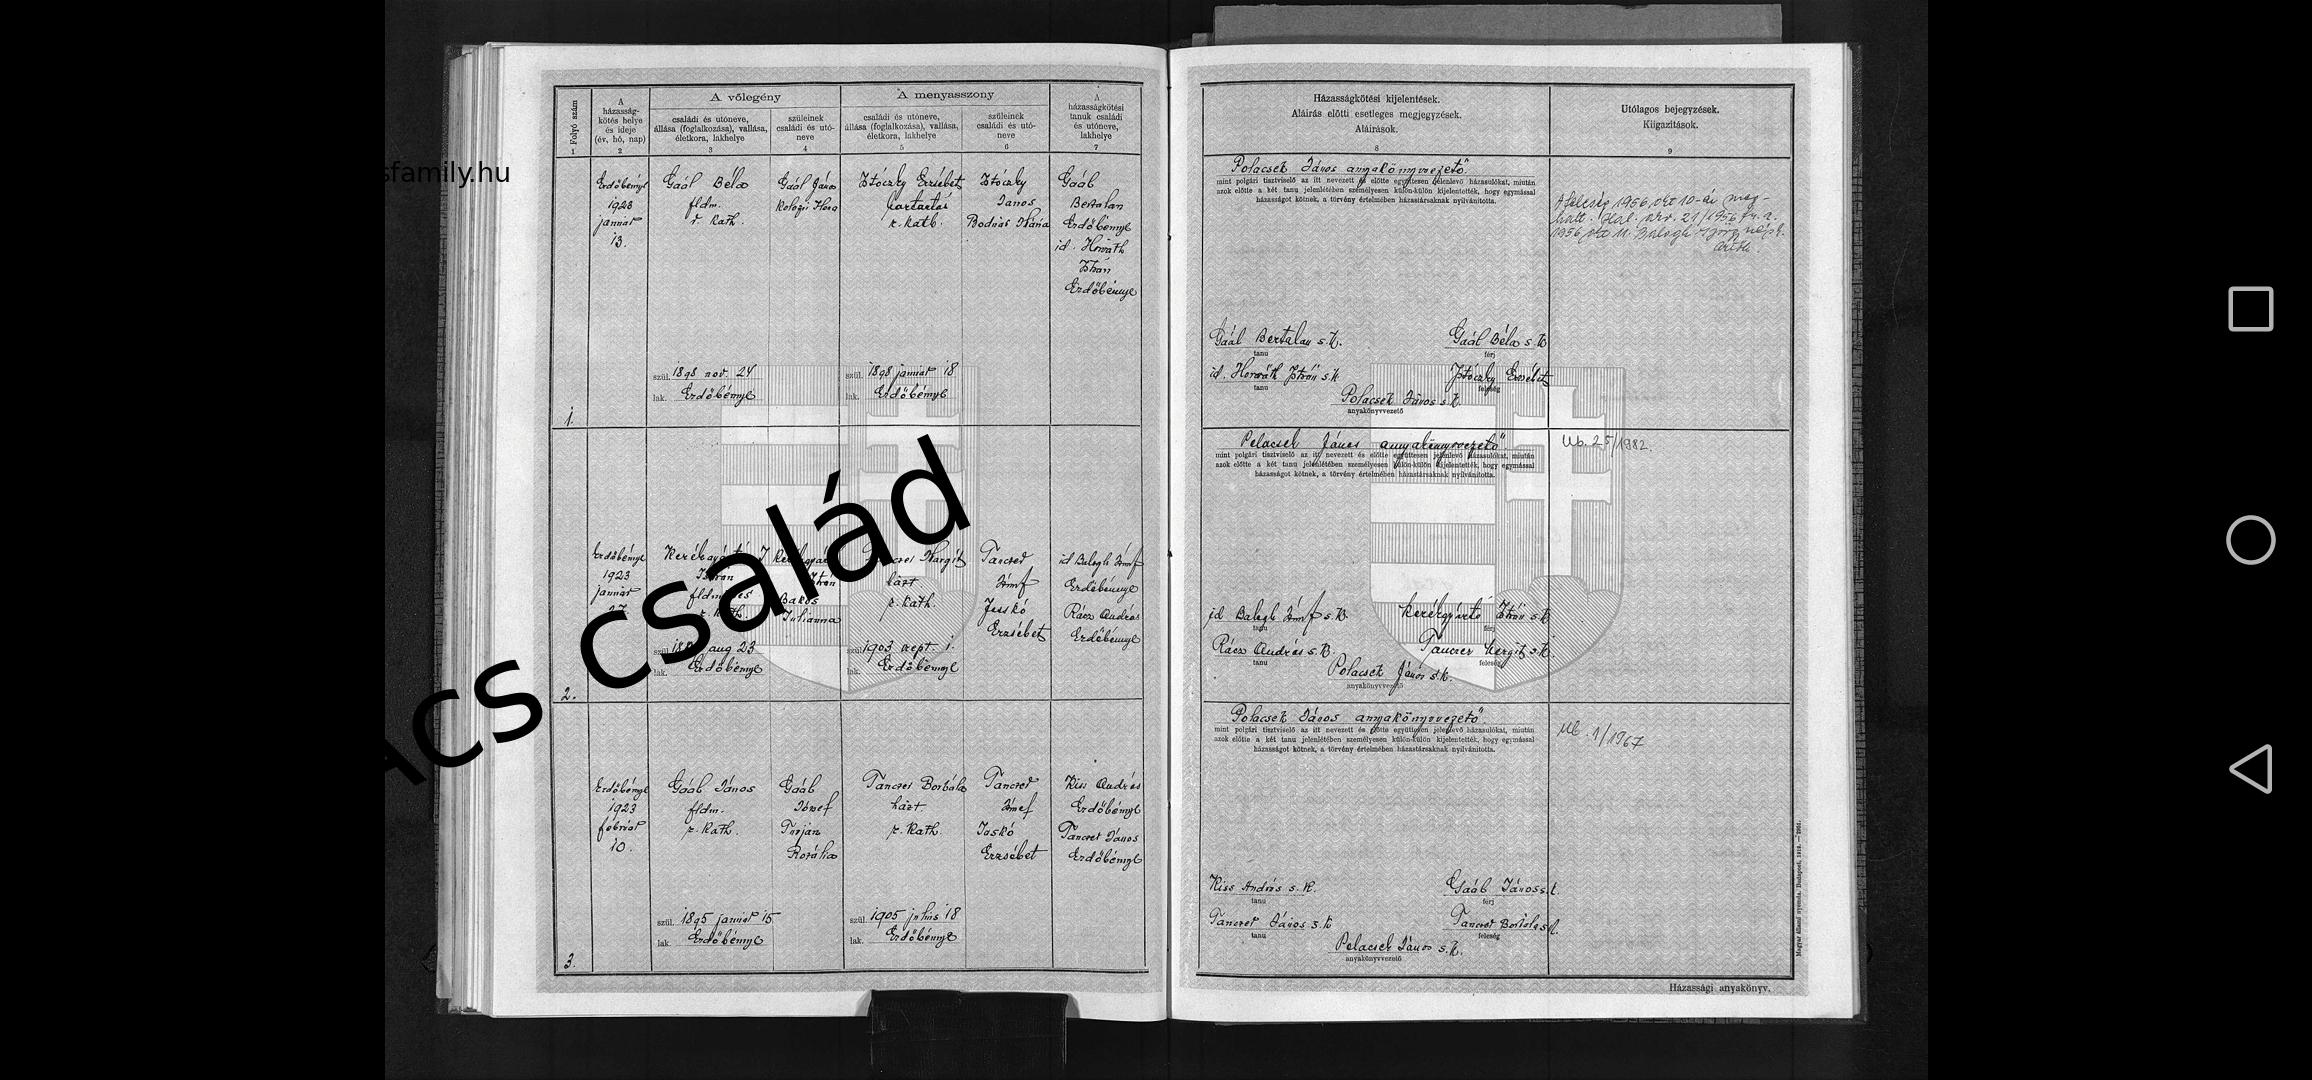 A vőlegény
A menyasszony
Folyó szám
A
házasság-
kötés helye
és ideje
(év, hó, nap)
családi és utóneve,
állása (foglalkozása), vallása,
életkora, lakhelye
szüleinek
családi és utó-
neve
családi és utóneve,
állása (foglalkozása), vallása,
életkora, lakhelye
szüleinek
családi és utó-
neve
A
házasságkötési
tanuk családi
és utóneve,
lakhelye
1 2 3 4 5 6 7
Erdőbénye
1923
január
13.
Gaál Béla
fldm.
r. kath.
szül. 1898 nov. 24
lak. Erdőbénye
Gaál János
Erzsébet
r. kath.
szül. 1898 január 18
lak. Erdőbénye
János
Bodnár
Gaál
Bertalan
Erdőbénye
id. Horváth
István
Erdőbénye
1.
Erdőbénye
1923
január
István
r. kath.
aug 23
lak. Erdőbénye
István
Bakos
Julianna
Margit
házt
r. kath.
szül. 1903 szept. 1.
lak. Erdőbénye
Tancrer
József
Jesskó
Erzsébet
id Balogh József
Erdőbénye
Rácz András
Erdőbénye
2.
Erdőbénye
1923
február
10.
Gaál János
fldm.
r. kath.
szül. 1895 január 15
lak. Erdőbénye
Gaál
József
Turján
Rozália
Tancrer Borbála
házt
r. kath.
szül. 1905 julius 18
lak. Erdőbénye
Tancrer
József
Jaskó
Erzsébet
Kiss András
Erdőbénye
Tancrer János
Erdőbénye
3.
Házasságkötési kijelentések.
Aláírás előtti esetleges megjegyzések.
Aláírások.
8
Utólagos bejegyzések.
Kiigazítások.
9
Polacsek János anyakönyvvezető
mint polgári tisztviselő az itt nevezett és előtte együttesen jelenlevő házasulókat, miután
azok előtte a két tanu jelenlétében személyesen külön-külön kijelentették, hogy egymással
házasságot kötnek, a törvény értelmében házastársaknak nyilvánította.
A feleség 1956. okt 10-én meg-
halt. Hal. akv. 21/1956 f.
1956 okt 11. Balogh
Gaál Bertalan s. k.
tanu
Gaál Béla s. k
férj
id. Horváth István s. k
tanu
Erzsébet
feleség
Polacsek János s. k.
anyakönyvvezető
Polacsek János anyakönyvvezető
mint polgári tisztviselő az itt nevezett és előtte együttesen jelenlevő házasulókat, miután
azok előtte a két tanu jelenlétében személyesen külön-külön kijelentették, hogy egymással
házasságot kötnek, a törvény értelmében házastársaknak nyilvánította.
Ub. 25/1982.
id Balogh József s. k.
tanu
Kerékgyártó István s. k
férj
Rácz András s. k.
tanu
Tancrer Margit s. k
feleség
Polacsek János s. k.
anyakönyvvezető
Polacsek János anyakönyvvezető
mint polgári tisztviselő az itt nevezett és előtte együttesen jelenlevő házasulókat, miután
azok előtte a két tanu jelenlétében személyesen külön-külön kijelentették, hogy egymással
házasságot kötnek, a törvény értelmében házastársaknak nyilvánította.
Ub. 1/1967
Kiss András s. k.
tanu
Gaál János s. k.
férj
Tancrer János s. k
tanu
Tancrer Borbála s. k.
feleség
Polacsek János s. k.
anyakönyvvezető
Házassági anyakönyv.
sfamily.hu
ács család